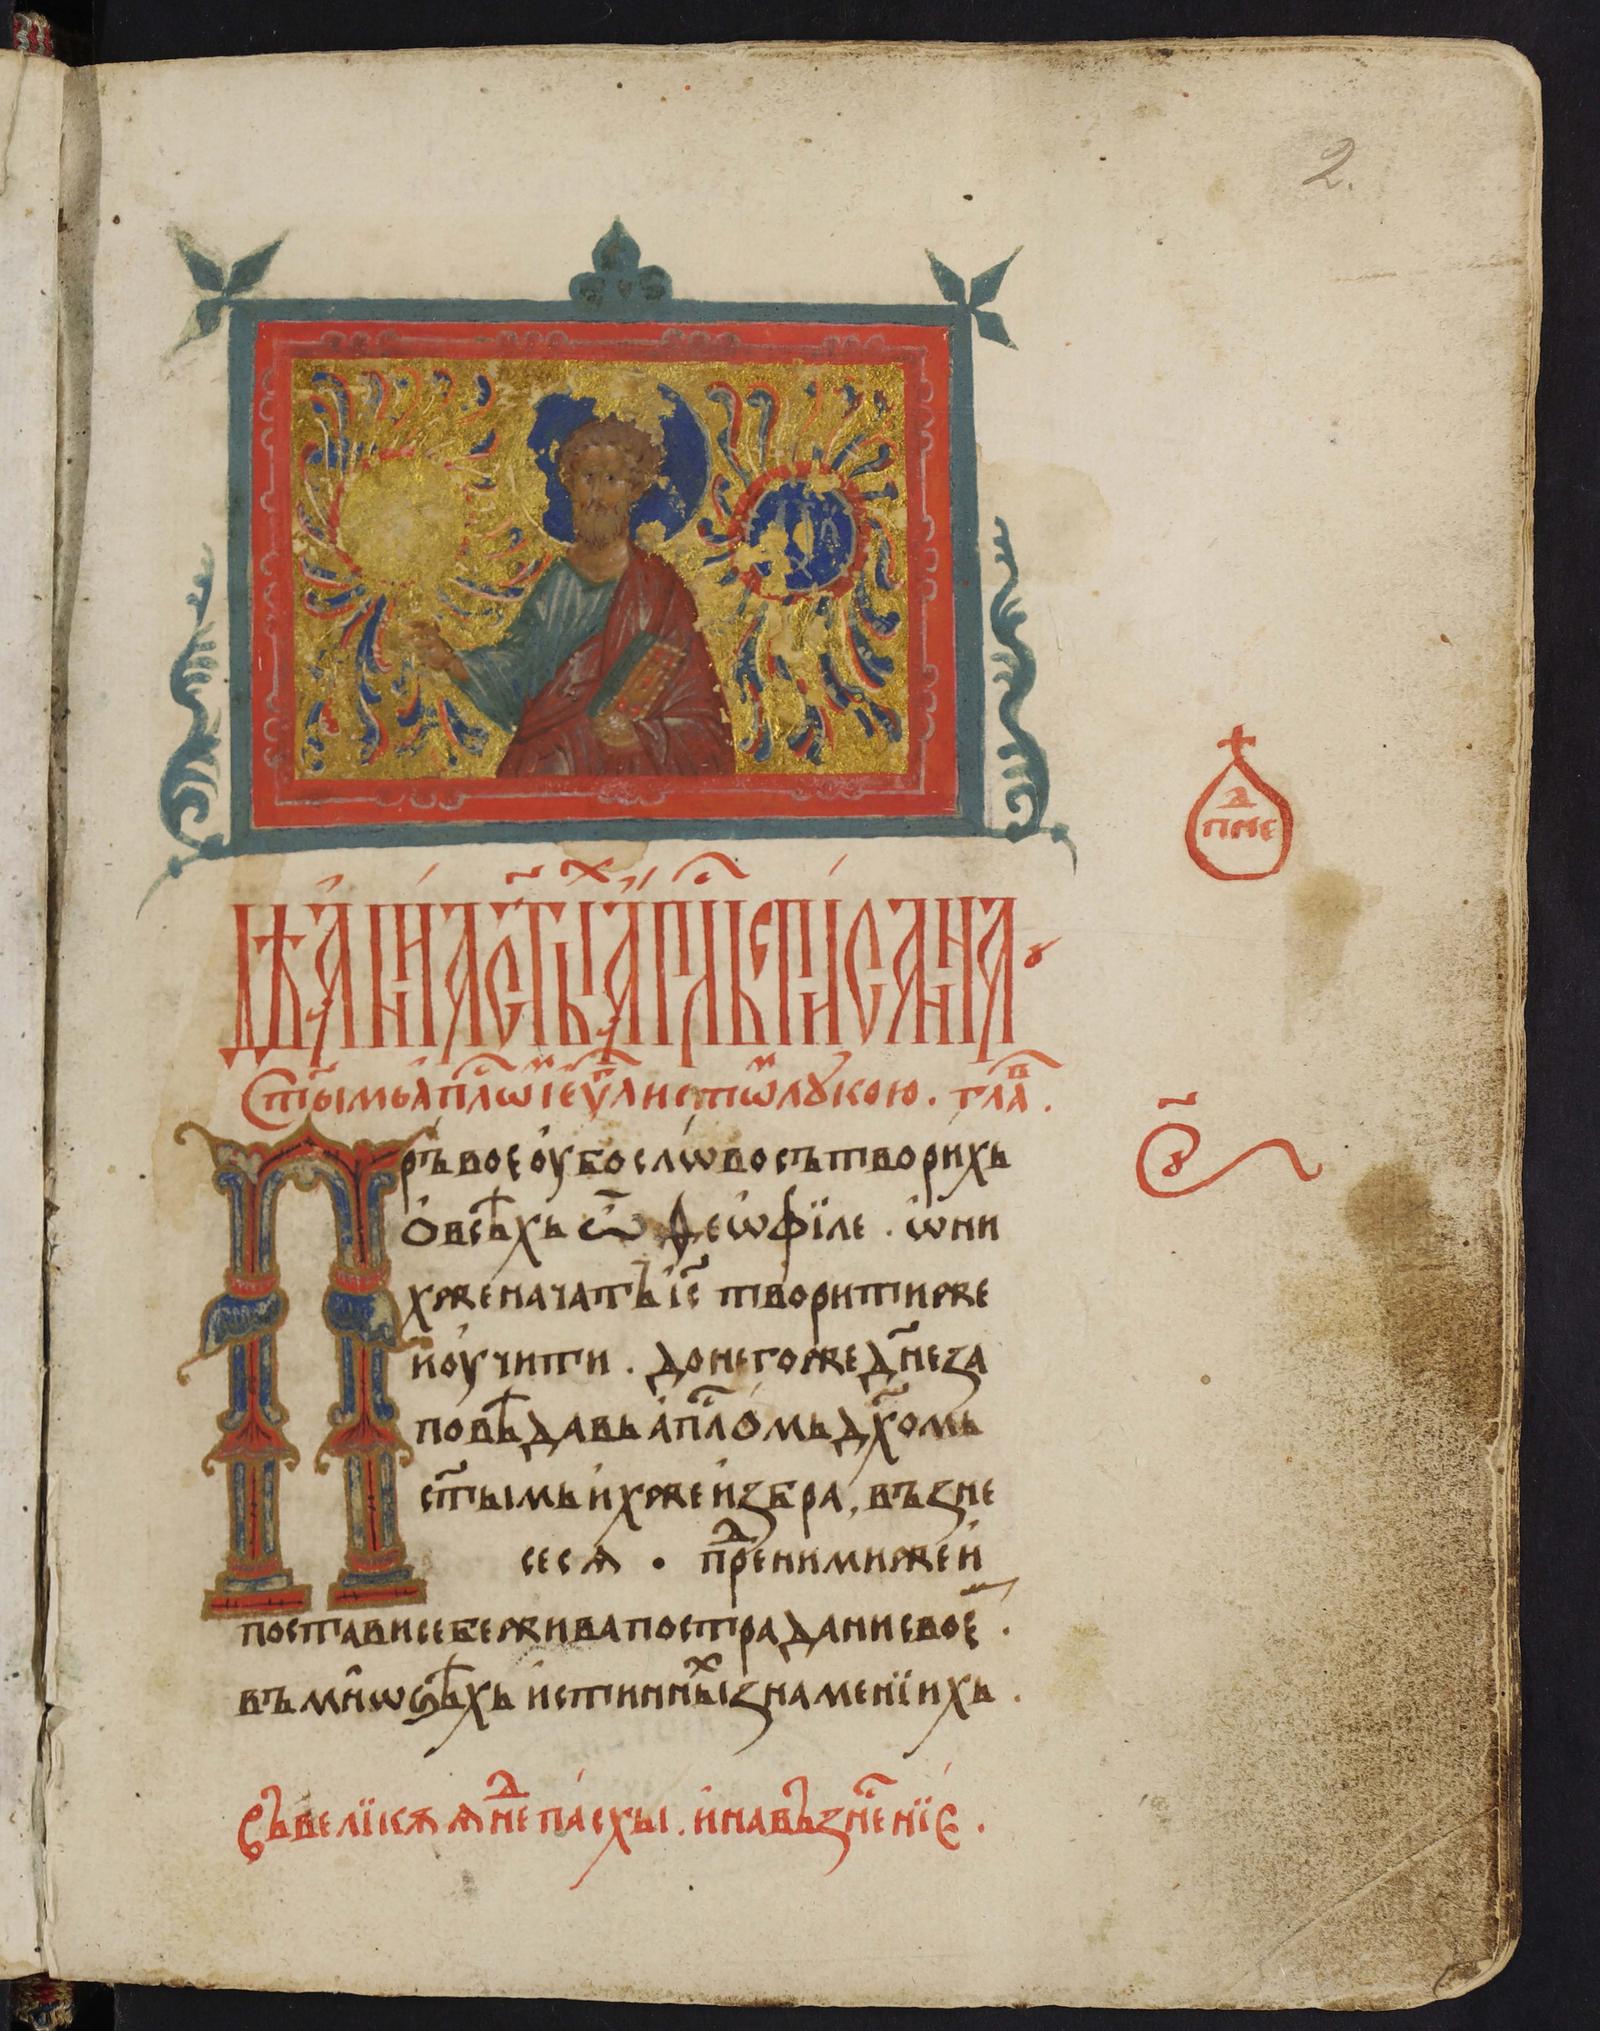 2.
дѣа҆нїа ст҃ыⷯ а҆пⷭ҇лъ спи́сана
ст҃ымь а҆пⷭ҇лѡⷨ і҆ е҆ѵⷢ҇листѡⷨ лꙋкою. глаⷡ҇.
а҃
пне
Пръвое оу҆бо сло́во сътвори́хь
ѻ҆ всѣ́хь ѽ ѳео҆фїле . ѡ҆ ни
хже начатъ і҆с҃ творити же
и҆ оу҆чити . до негоже дн҃е за
повѣ́давь а҆пⷭ҇лѻ́мь дх҃омь
ст҃ымь и҆хже и҆збра , възне
сесѧ • прⷣе ними же и҆
постави себе жива по страдани свое҆ .
въ мн́ѡѕѣ́хь и҆стинныⷯ знаменїихь .
Съ великѧѧ неⷣ па́схы . и҆ на възнⷭ҇енїе́ .